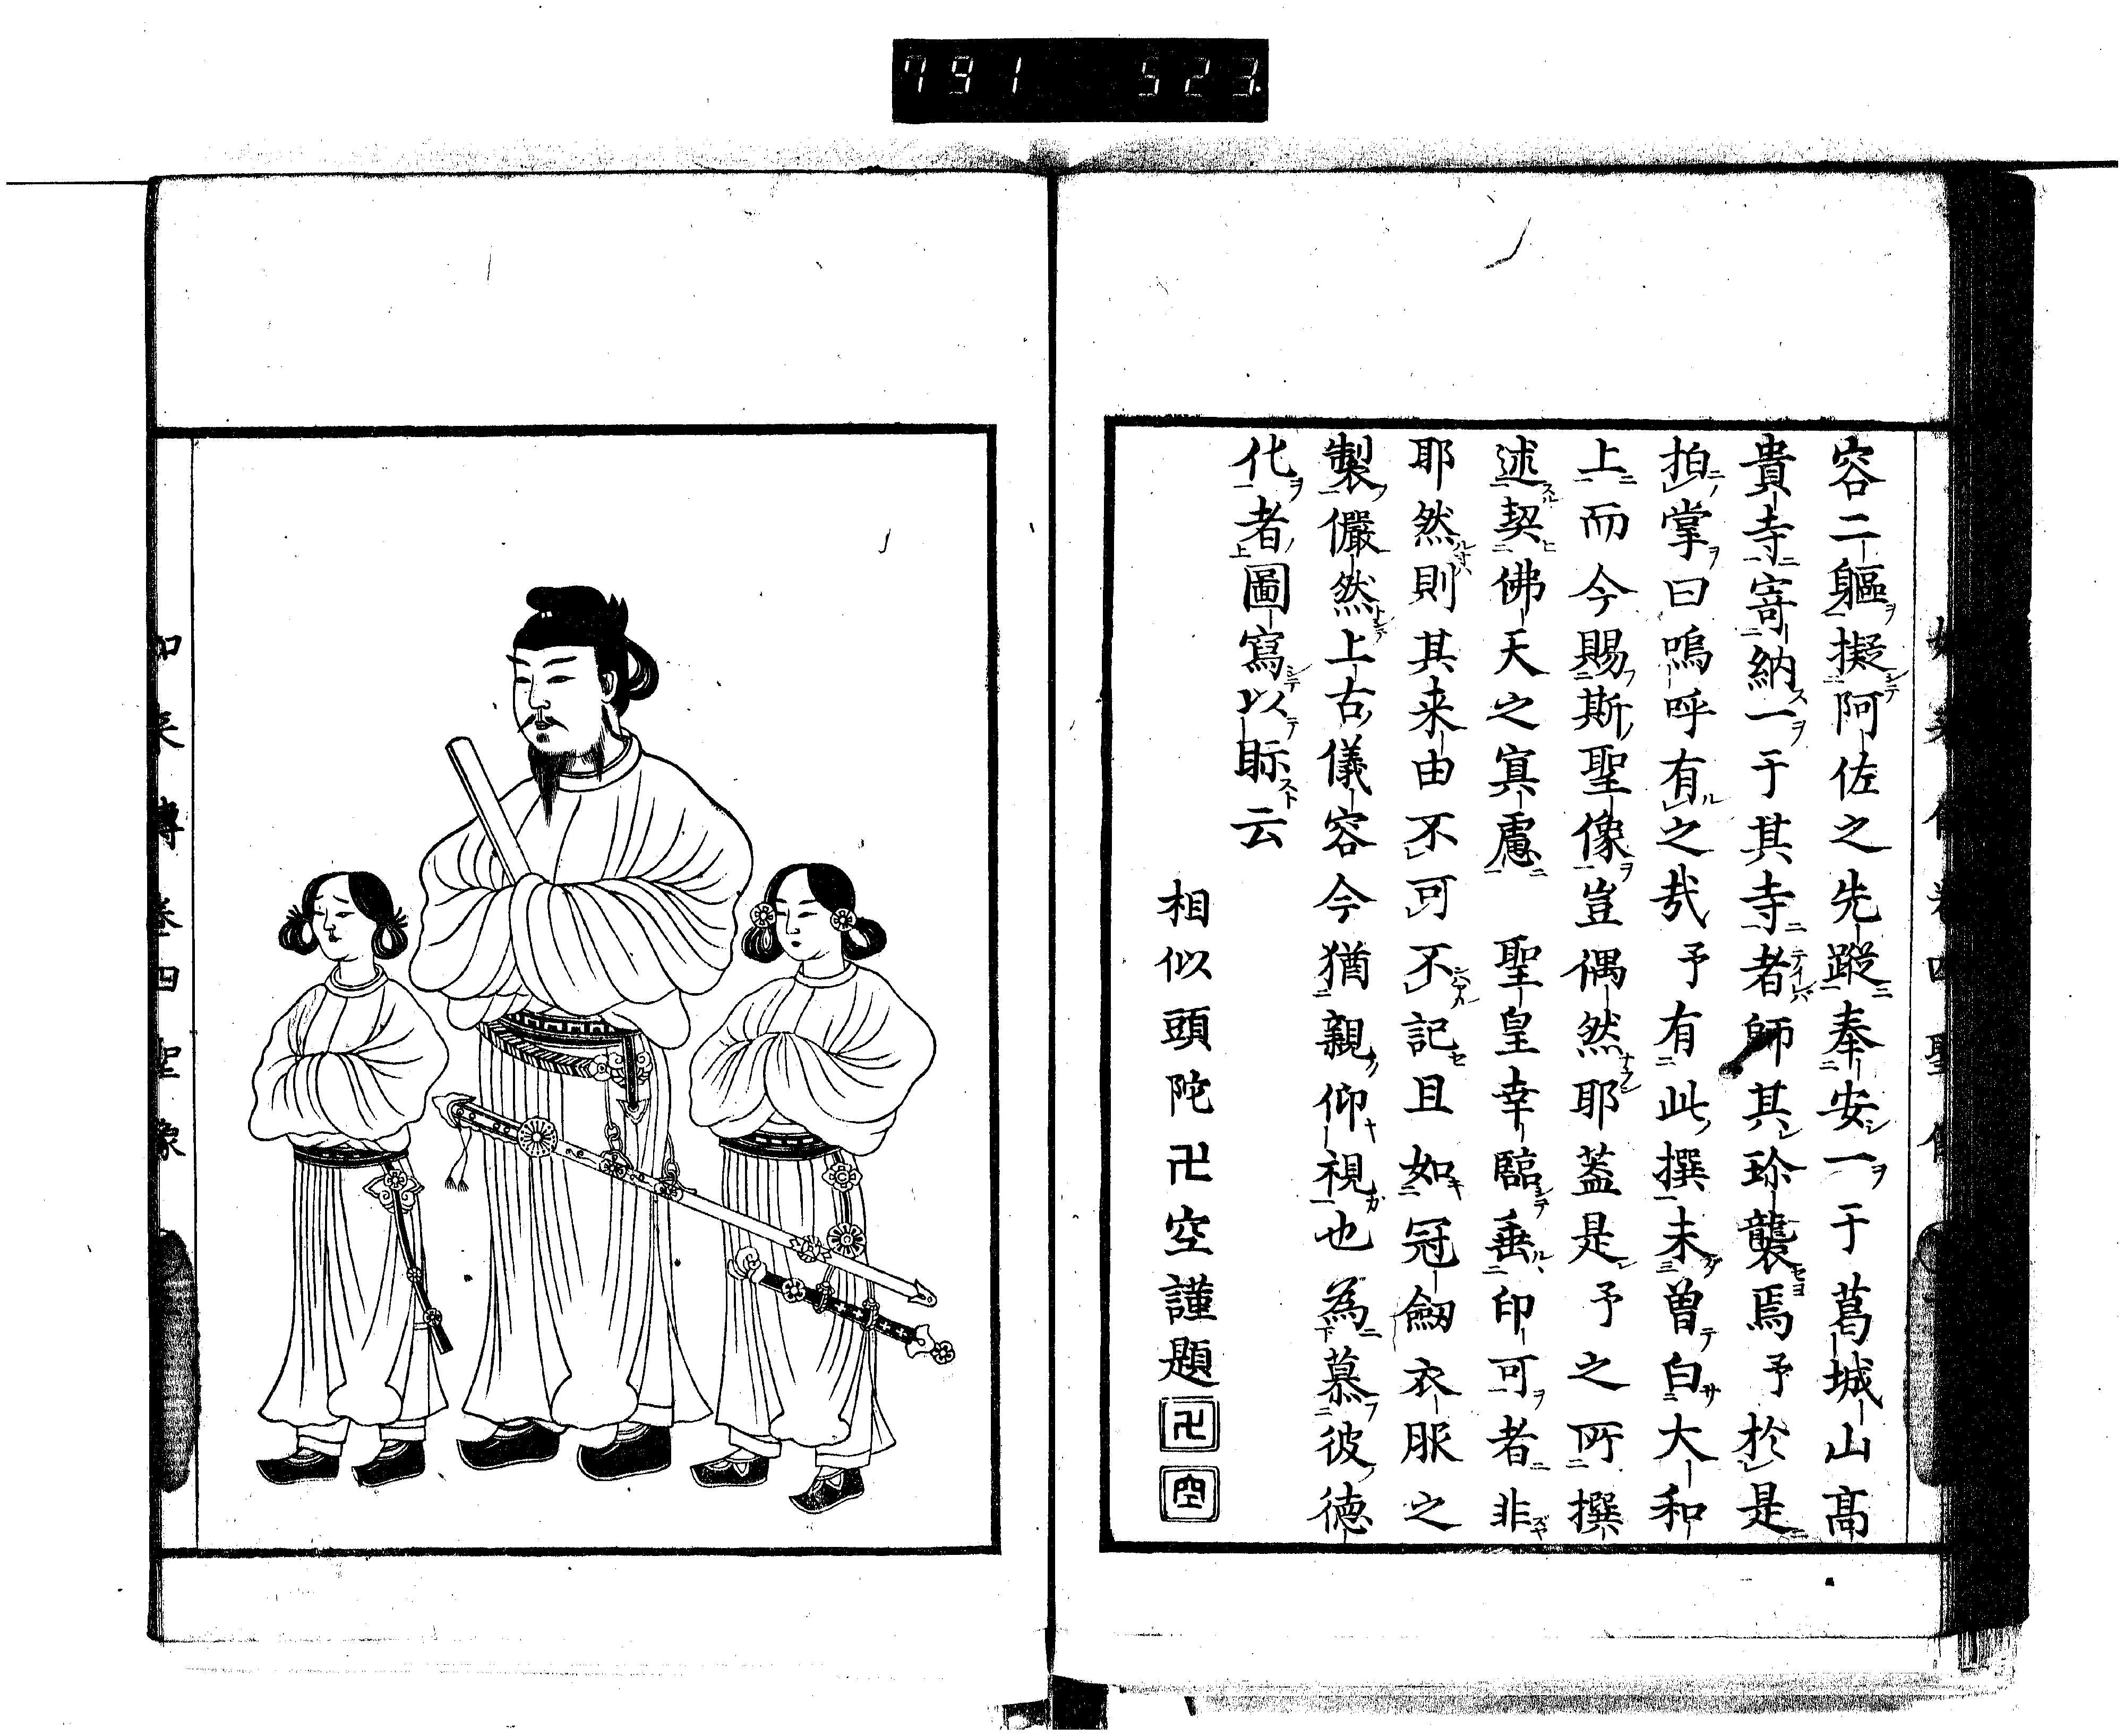 791 523
容二軀擬阿佐之先蹤奉安一于葛城山高
貴寺寄納一于其寺者師其珍襲焉予於是
拍掌曰嗚呼有之哉予有此撰未曾白大和
上而今賜斯聖像豈偶然耶蓋是予之所撰
述契佛天之冥慮 聖皇幸臨垂印可者非
耶然則其来由不可不記且如冠劔衣服之
製儼然上古儀容今猶親仰視也為慕彼德
化者圖寫以眎云
相似頭陀卍空謹題
卍
空
如来傳卷四聖像